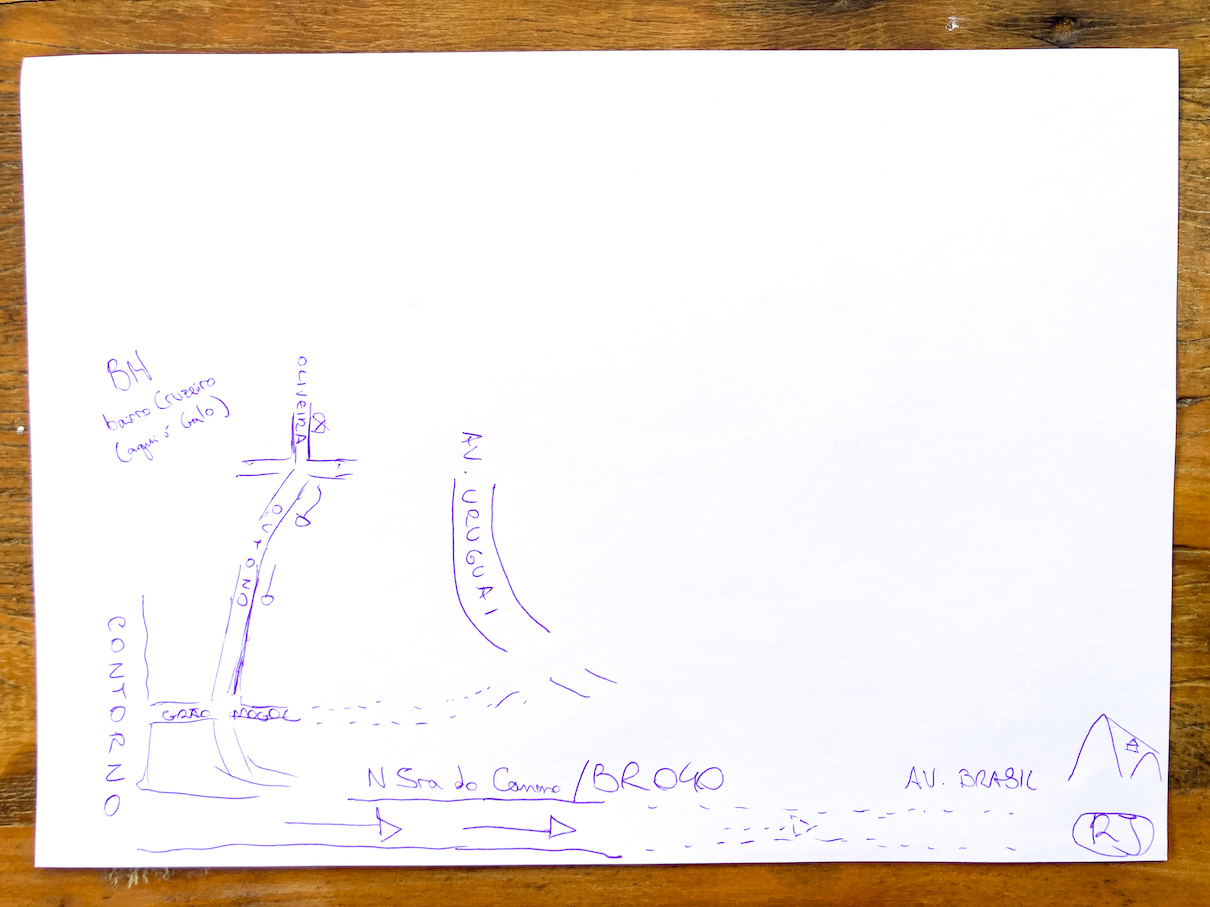 BH
bairro Cruzeiro
(aqui é Galo)
OLIVEIRA
OUTONO
AV. URUGUAI
CONTORNO
GRÃO MOGOL
N Sra do Carmo / BR040
AV. BRASIL
RJ